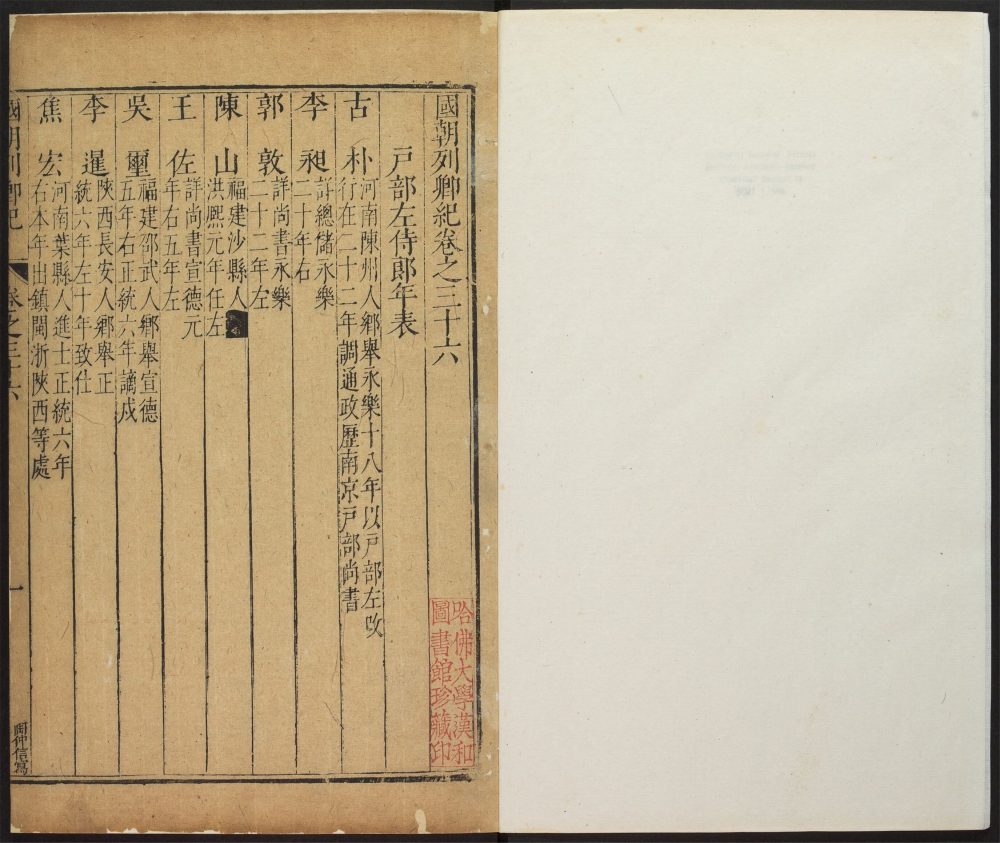 國朝列卿紀卷之三十六
戶部左侍郎年表
古朴
河南陳州人鄉舉永樂十八年以戶部左改
行在二十二年調通政歷南京戶部尚書
李昶
詳總儲永樂
二十年右
郭敦
詳尚書永樂
二十二年左
陳山
福建沙縣人
洪熙元年任左
王佐
詳尚書宣德元
年右五年左
吳璽
福建邵武人鄉舉宣德
五年右正統六年謫戍
李暹
陝西長安人鄉舉正
統六年左十年致仕
焦宏
河南葉縣人進士正統六年
右本年出鎮閩浙陝西等處
國朝列卿紀
卷之三十六
一
陶仲信寫
哈佛大學漢和
圖書館珍藏印